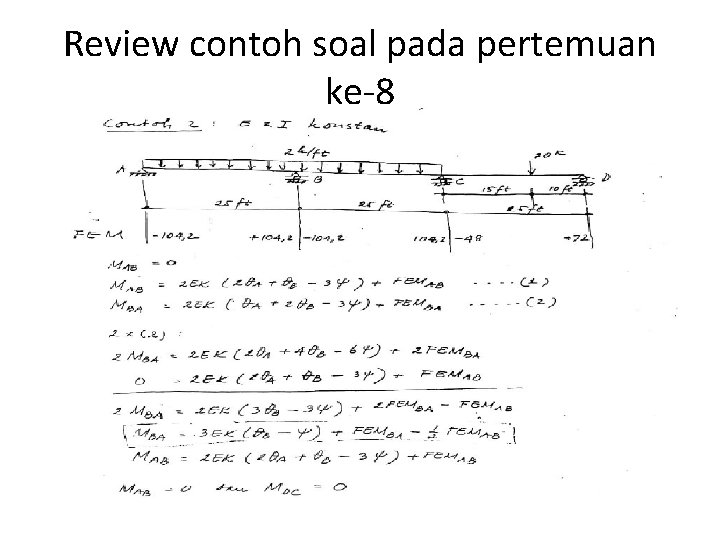 Review contoh soal pada pertemuan
ke-8
Contoh 2 : E & I konstan
2 k/ft 20K
A B C D
15 ft 10 ft
25 ft 25 ft 25 ft
FEM -104,2 +104,2 -104,2 104,2 -48 +72
M_AB = 0
M_AB = 2EK (2θ_A + θ_B - 3ψ) + FEM_AB ---- (1)
M_BA = 2EK (θ_A + 2θ_B - 3ψ) + FEM_BA ----- (2)
2 x (2) :
2 M_BA = 2EK (2θ_A + 4θ_B - 6ψ) + 2FEM_BA
0 = 2EK (2θ_A + θ_B - 3ψ) + FEM_AB
2 M_BA = 2EK (3θ_B - 3ψ) + 2FEM_BA - FEM_AB
M_BA = 3EK (θ_B - ψ) + FEM_BA - ½ FEM_AB
M_AB = 2EK (2θ_A + θ_B - 3ψ) + FEM_AB
M_AB = 0 dan M_DC = 0